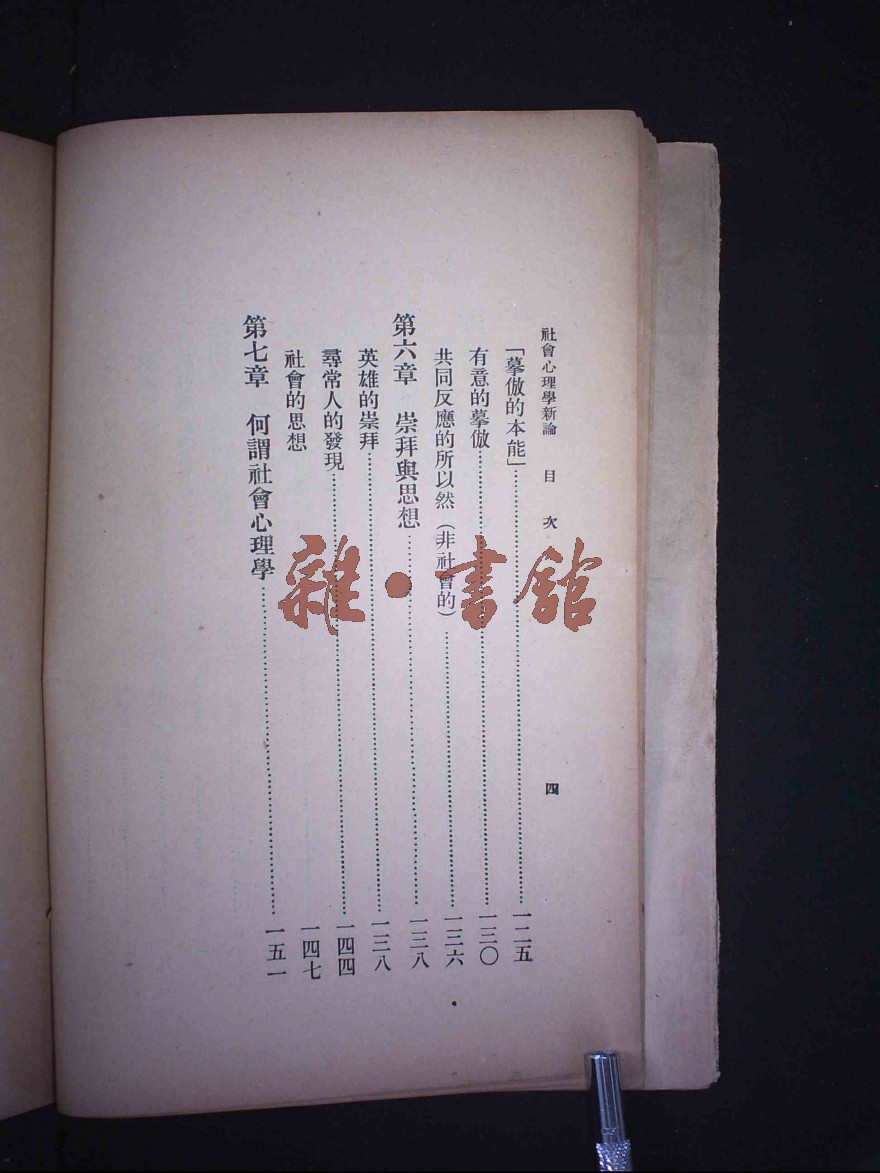 社會心理學新論 目次 四
「摹倣的本能」……一二五
有意的摹倣……一三〇
共同反應的所以然（非社會的）……一三六
第六章 崇拜與思想……一三八
英雄的崇拜……一三八
尋常人的發現……一四四
社會的思想……一四七
第七章 何謂社會心理學……一五一
雜·書館